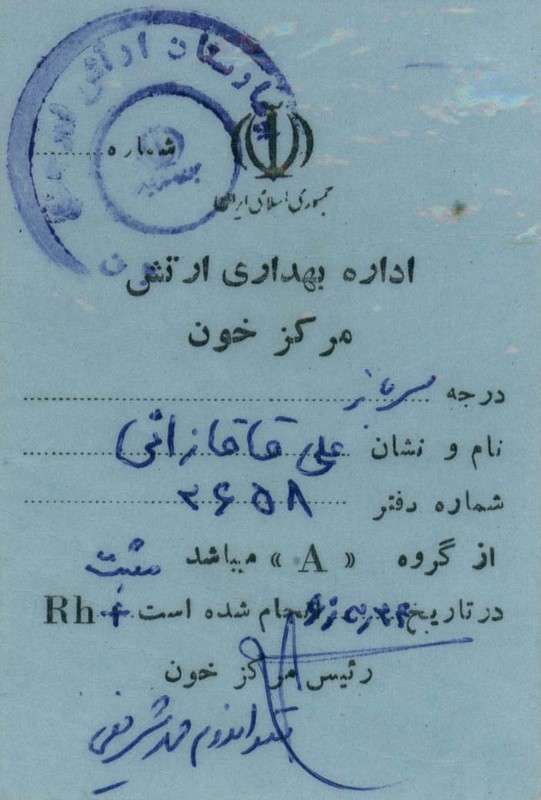 شماره
جمهوری اسلامی ایران
اداره بهداری ارتش
مرکز خون
درجه سرباز
نام و نشان علی قاقازانی
شماره دفتر ۲۶۵۸
از گروه « A » میباشد مثبت
در تاریخ انجام شده است Rh +
رئیس مرکز خون